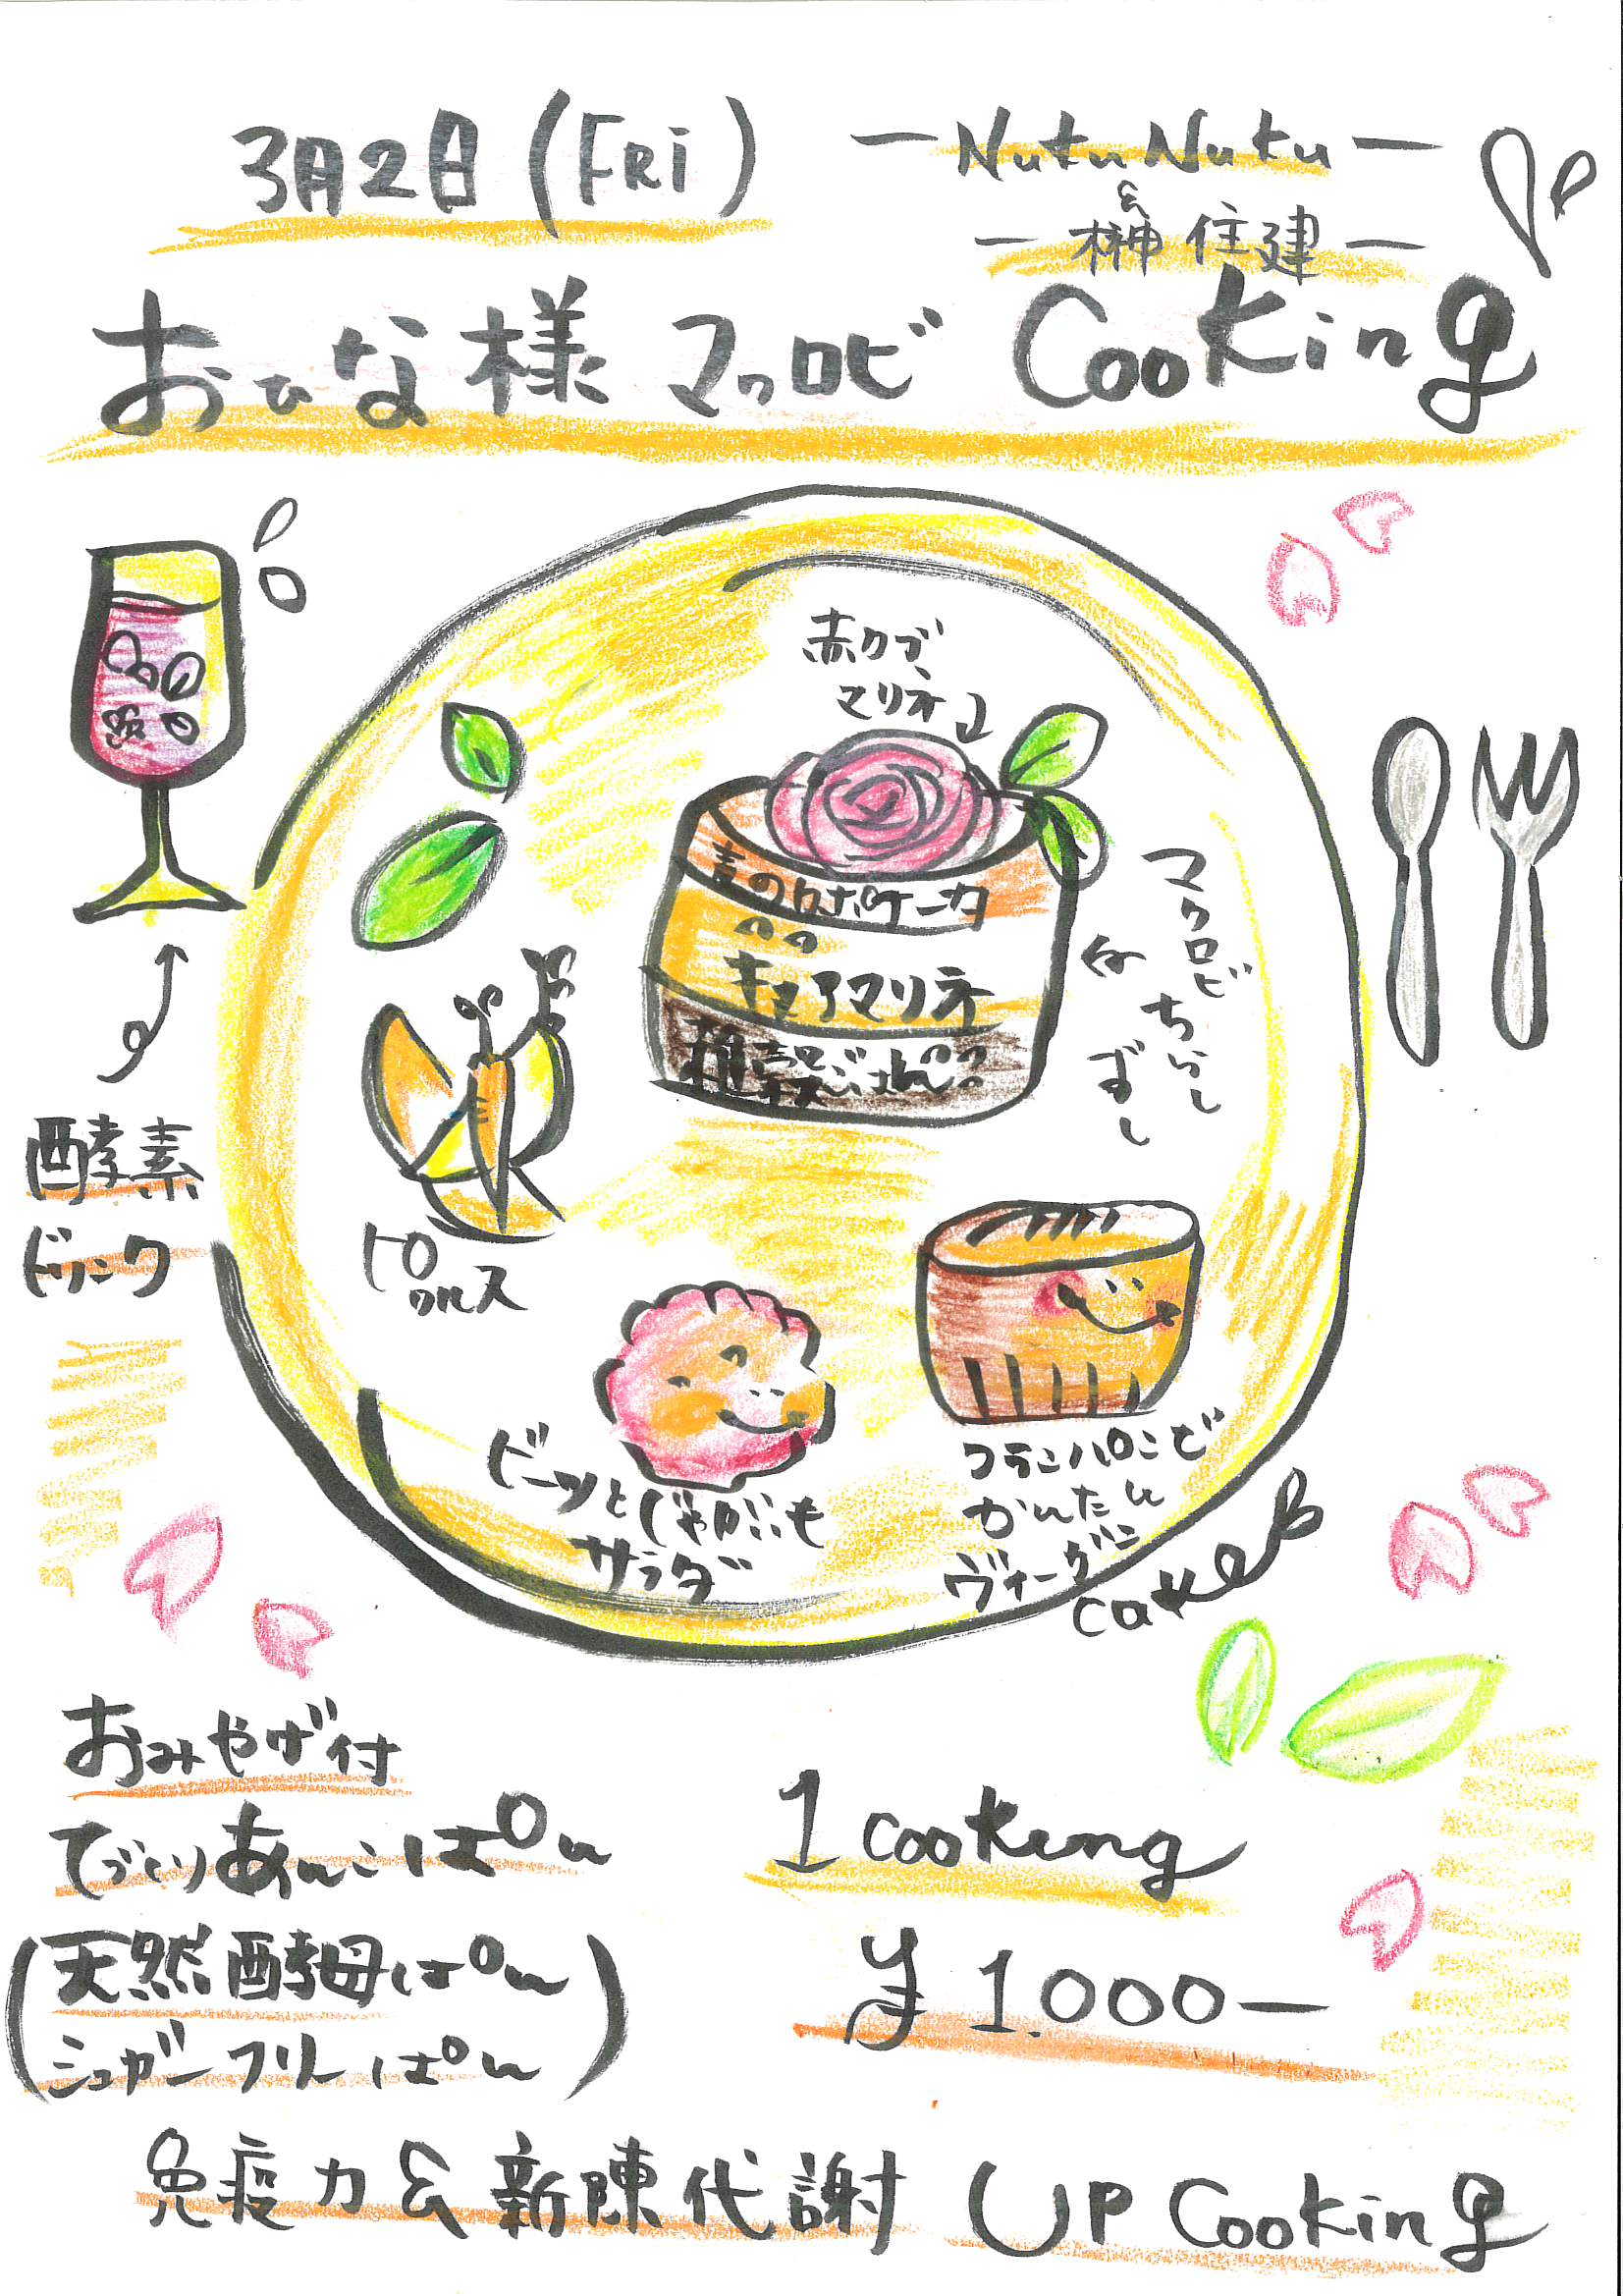 3月2日(FRi)
NukuNuku
&
榊住建
おひな様マクロビ Cooking
赤カブ
マリネ
マクロビ
ちらし
ずし
キヌアマリネ
雑穀ごはん
酵素
ドリンク
ピクルス
ビーツとじゃがいも
サラダ
フランパンで
かんたん
ヴィーガン
cake
おみやげ付
てづくりあんこぱん
(天然酵母ぱん
シュガーフリーぱん)
1 cooking
¥1.000ー
免疫力&新陳代謝 UP Cooking